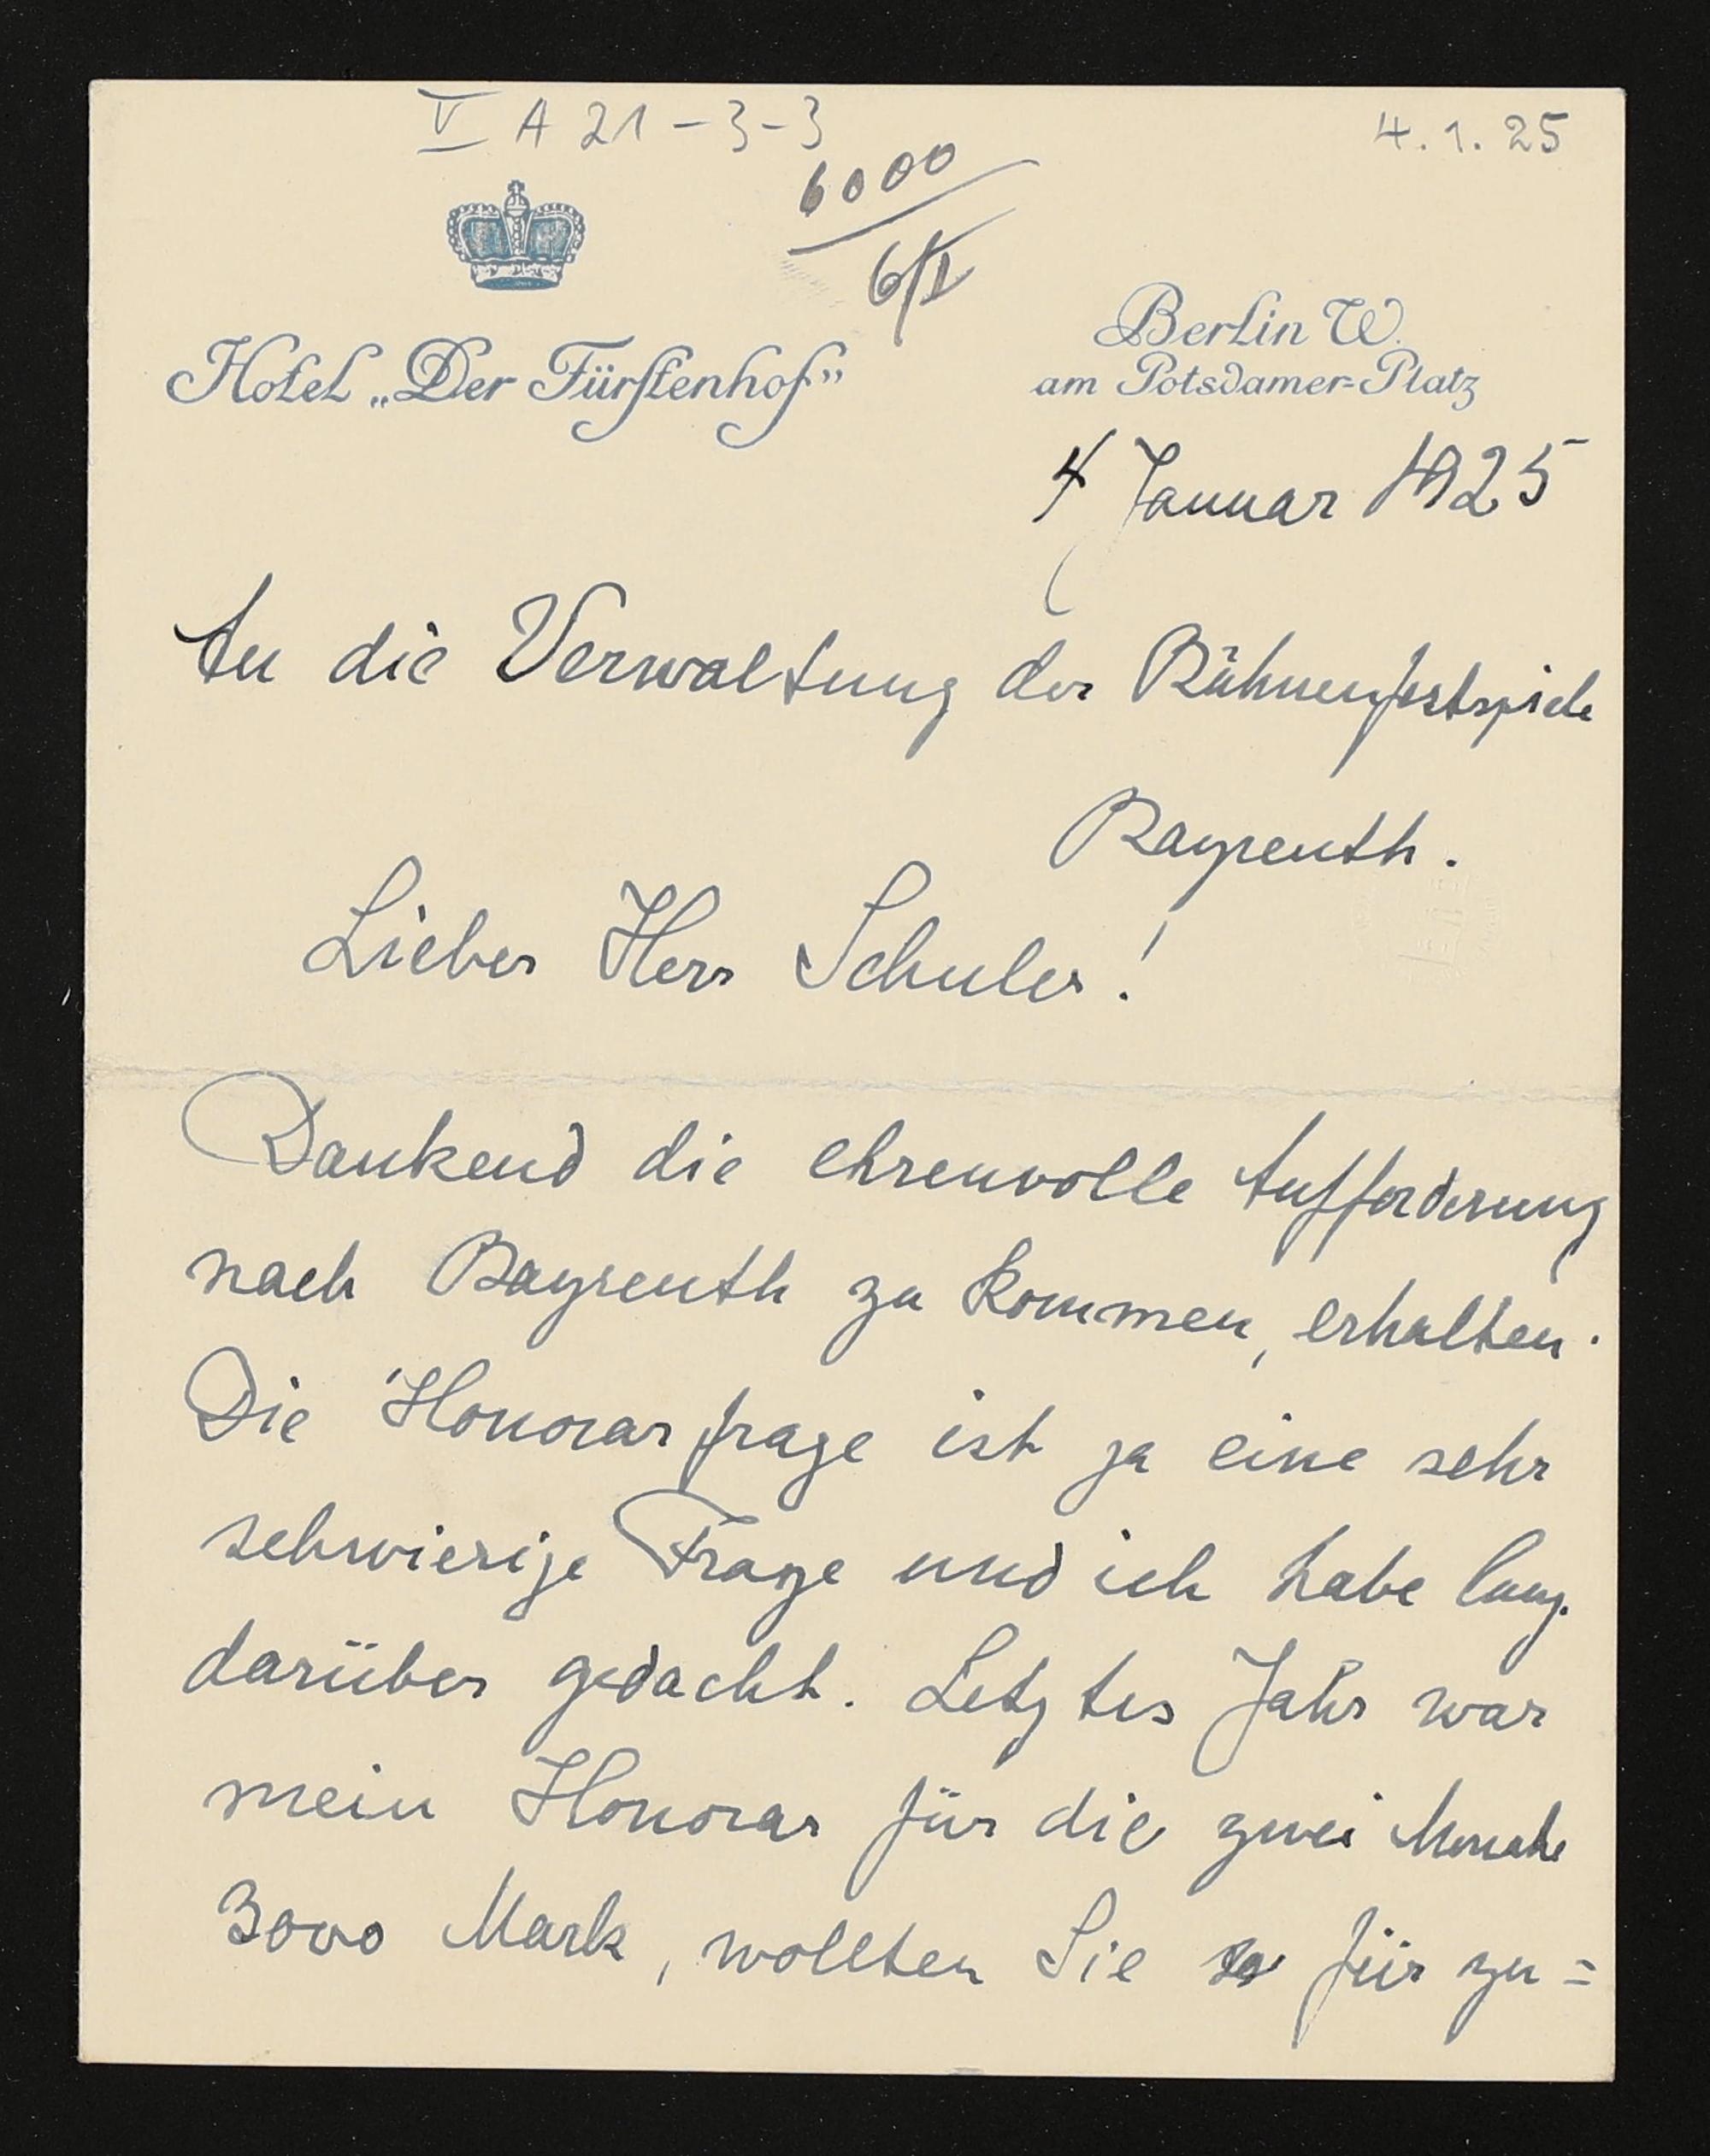 V A 21 - 3 - 3
4.1.25
6000
6/I
Hotel „Der Fürstenhof"
Berlin W.
am Potsdamer-Platz
4 Januar 1925
An die Verwaltung der Bühnenfestspiele
Bayreuth.
Lieber Herr Schuler!
Dankend die ehrenvolle Aufforderung
nach Bayreuth zu kommen, erhalten.
Die Honorarfrage ist ja eine sehr
schwierige Frage und ich habe lang
darüber gedacht. Letztes Jahr war
mein Honorar für die zwei Monate
3000 Mark, wollten Sie für zu=